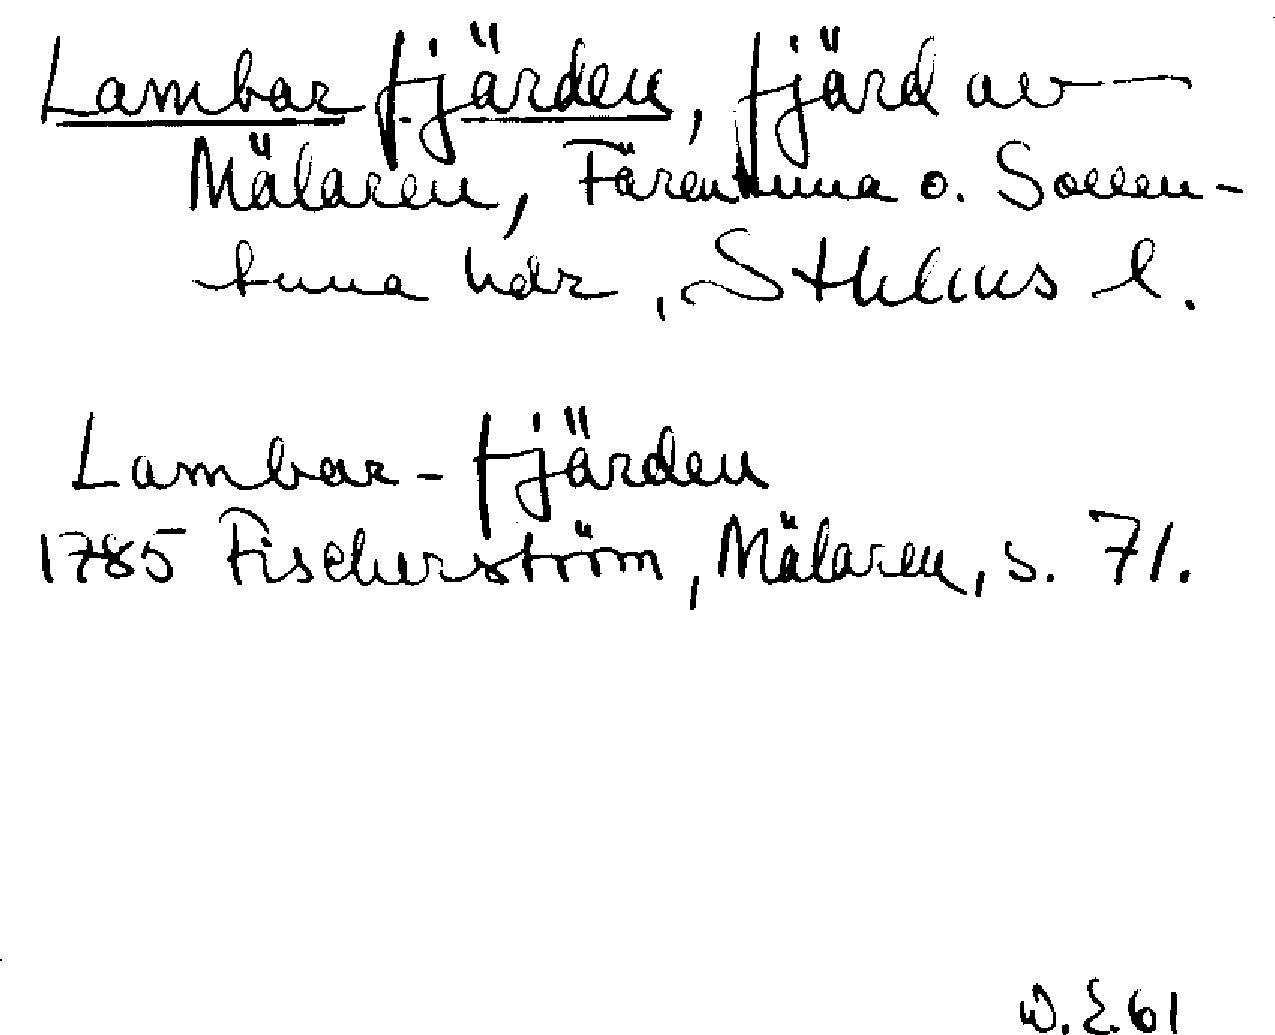 Lambarfjärden, fjärd av
Mälaren, Färentuna o. Sollen-
tuna hdr, Sthlms l.
Lambar-fjärden
1785 Fischerström, Mälaren, s. 71.
W.E. 61